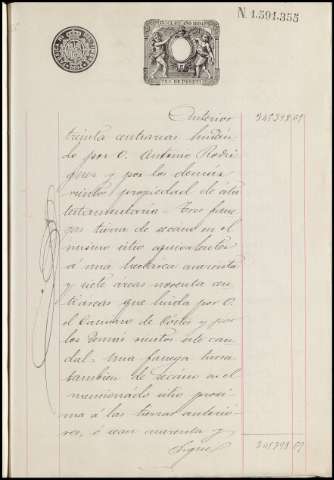 N. 1.591.355
Anterior 345398.69
treinta centiareas lindan
do por O. Antonio Rodri
guez y por los demás
vientos propiedad de esta
testamentaría. Tres fane
gas tierra de secano en el
mismo sitio equivalentes
á una hectárea cuarenta
y siete áreas noventa cen
tiáreas que linda por O.
el Camino de y por
los demás vientos este cau
dal. Una fanega tierra
tambien de secano en el
mencionado sitio proxi
ma á las tierras anterio
res, ó sean cuarenta y
Sigue 345398.69